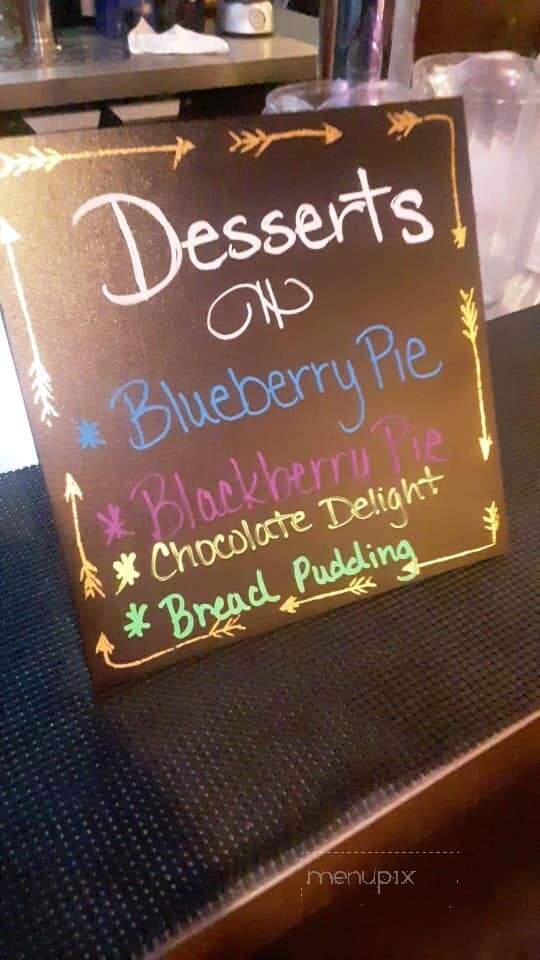 Desserts
* Blueberry Pie
* Blackberry Pie
* Chocolate Delight
* Bread Pudding
menupix